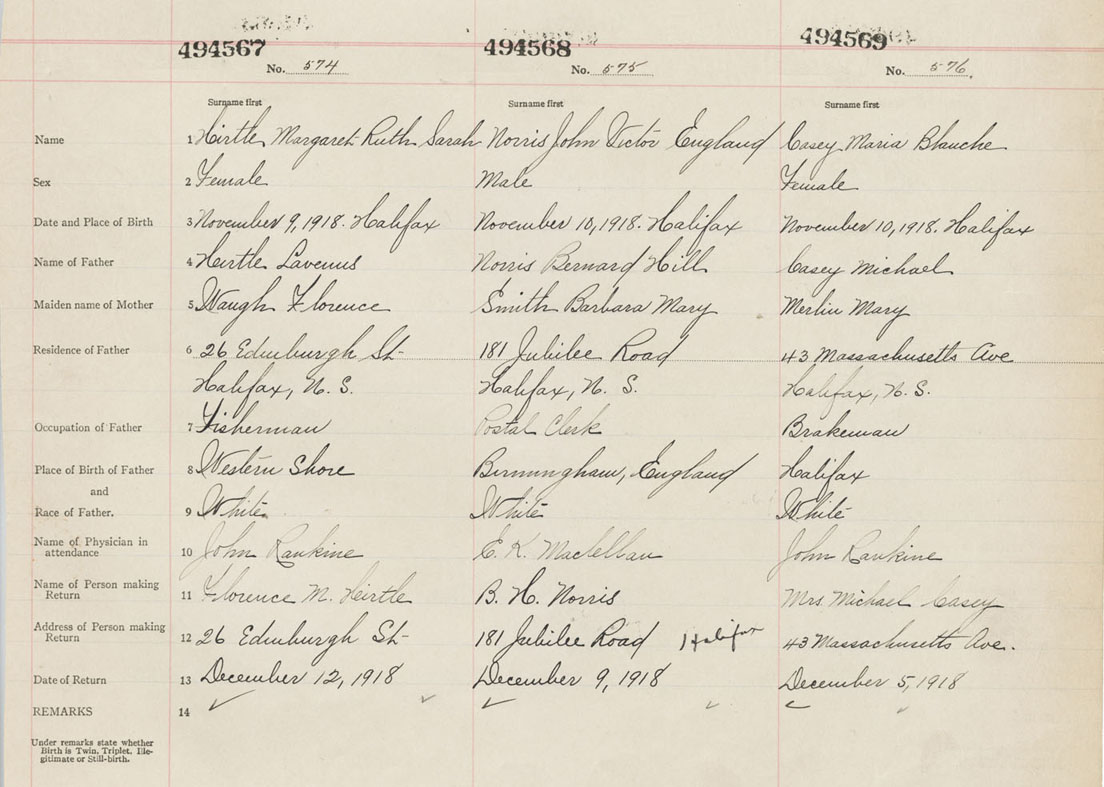 494567 494568 494569
No. 574 No. 575 No. 576.
Surname first Surname first Surname first
Name 1 Heirtle, Margaret Ruth Sarah Norris John Victor England Casey Maria Blanche
Sex 2 Female Male Female
Date and Place of Birth 3 November 9, 1918. Halifax November 10, 1918. Halifax November 10, 1918. Halifax
Name of Father 4 Heirtle Lavenus Norris Bernard Hill Casey Michael
Maiden name of Mother 5 Waugh Florence Smith Barbara Mary Merlin Mary
Residence of Father 6 26 Edinburgh St 181 Jubilee Road 43 Massachusetts Ave
Halifax, N. S. Halifax, N. S. Halifax, N. S.
Occupation of Father 7 Fisherman Postal Clerk Brakeman
Place of Birth of Father 8 Western Shore Birmingham, England Halifax
and
Race of Father. 9 White White White
Name of Physician in
attendance 10 John Rankine E. K. Maclellan John Rankine
Name of Person making
Return 11 Florence M. Heirtle B. H. Norris Mrs Michael Casey
Address of Person making
Return 12 26 Edinburgh St 181 Jubilee Road Halifax 43 Massachusetts Ave.
Date of Return 13 December 12, 1918 December 9, 1918 December 5, 1918
REMARKS 14
Under remarks state whether
Birth is Twin, Triplet, Ille-
gitimate or Still-birth.